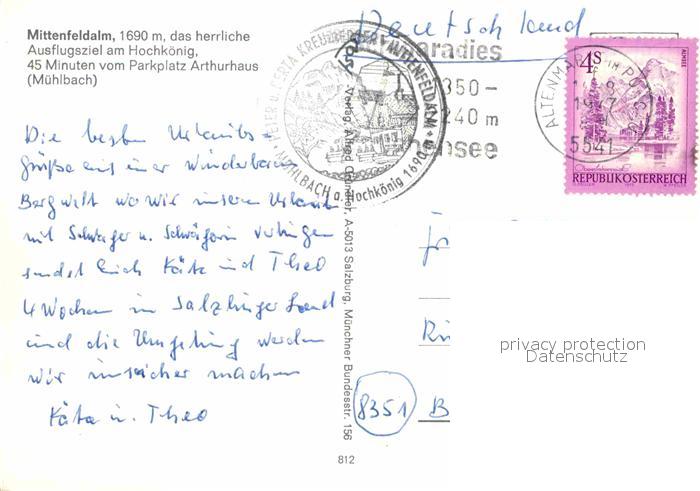 Mittenfeldalm, 1690 m, das herrliche
Ausflugsziel am Hochkönig,
45 Minuten vom Parkplatz Arthurhaus
(Mühlbach)
Die besten Urlaubs-
grüße aus einer wunderbaren
Bergwelt wo wir unseren Urlaub
mit Schwager u. Schwägerin verbringen
sendet Euch Käta und Theo
4 Wochen im Salzburger Land
und die Umgebung werden
wir unsicher machen
Käta u. Theo
Deutschland
PETER U. GERTA KREUZBERGER MITTENFELDALM
MÜHLBACH a. Hochkönig 1690
Paradies
350 –
240 m
nsee
ALTENMA
5541
4S
ALMSEE
REPUBLIK ÖSTERREICH
Verlag: Alfred Gründler, A-5013 Salzburg, Münchner Bundesstr. 156
812
8351 B
privacy protection
Datenschutz